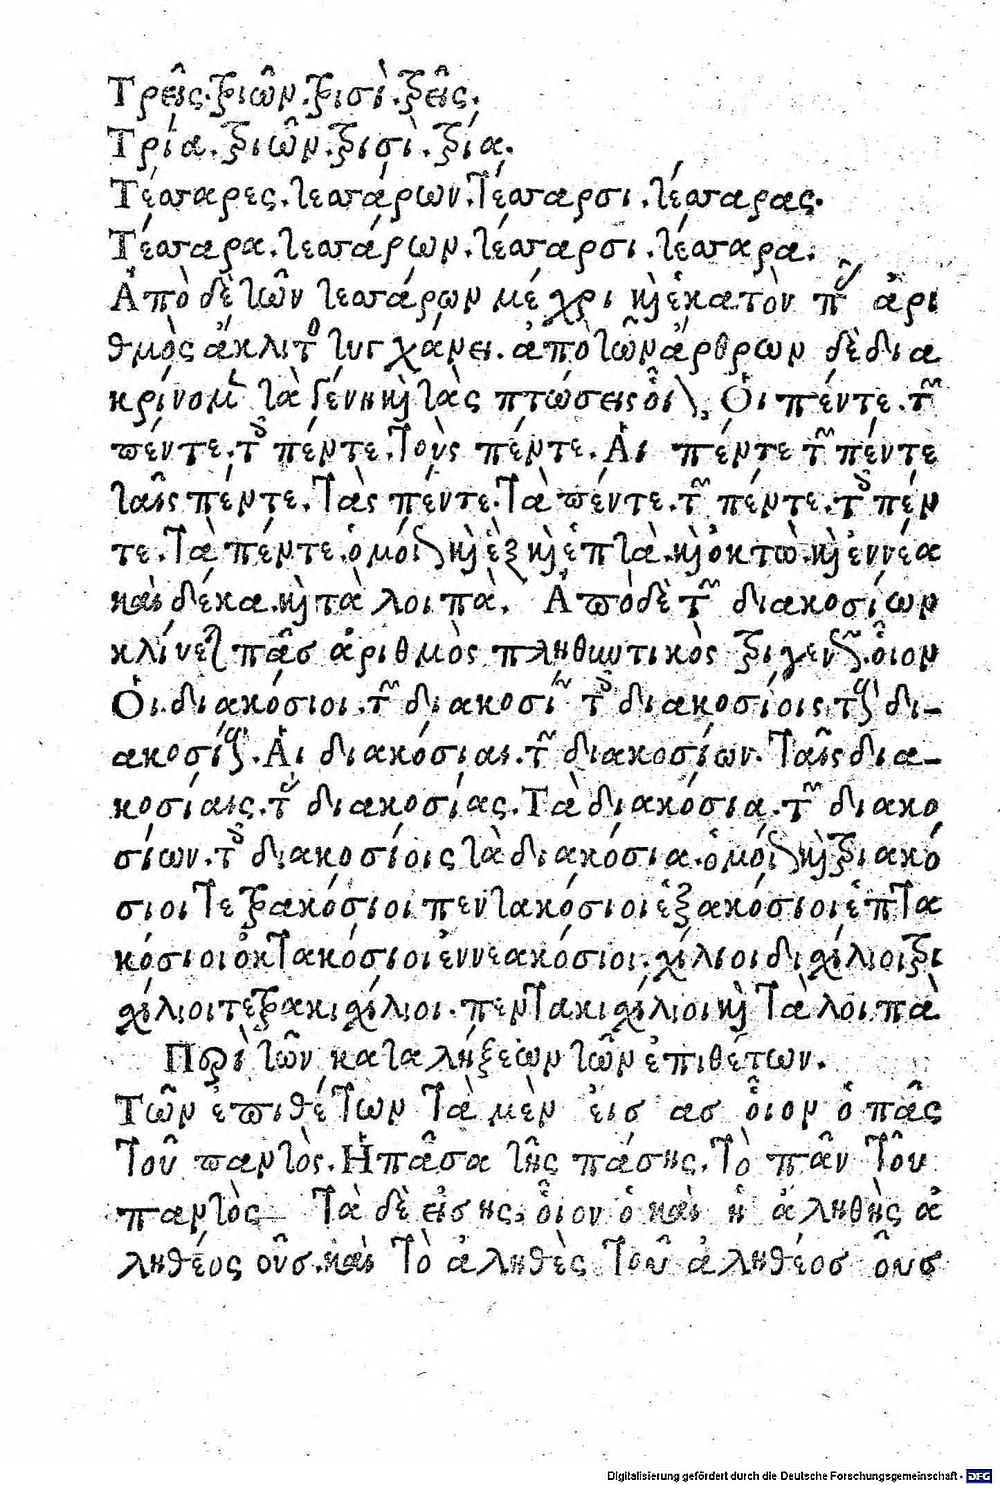 Τρεῖς. τριῶν. τρισὶ. τρεῖς.
Τρία. τριῶν. τρισὶ. τρία.
Τέσσαρες. τεσσάρων. τέσσαρσι. τέσσαρας.
Τέσσαρα. τεσσάρων. τέσσαρσι. τέσσαρα.
Ἀπὸ δὲ τῶν τεσσάρων μέχρι κὶ ἑκατὸν ἀρι
θμὸς ἄκλιτο τυγχάνει. ἀπὸ τῶν ἄρθρων δὲ δια
κρίνομ τὰ γένη κὶ τὰς πτώσεις οἷ, Ὁι πέντε. τῶν
πέντε. τοῖς πέντε. Τοὺς πέντε. Ἁι πέντε τῶν πέντε
ταῖς πέντε. Τὰς πέντε. Τὰ πέντε. τῶν πέντε. τοῖς πέν
τε. Τὰ πέντε. ὁμοί κὶ ἐξ κὶ ἑπτὰ. κὶ ὀκτὼ. κὶ ἐννέα
καὶ δέκα. κὶ τὰ λοιπὰ. Ἀπὸ δὲ τῶν διακοσίων
κλίνε πᾶσ ἀριθμὸς πληθωτικὸς τριγεν. ὅιον
Ὁι διακόσιοι. τῶν διακοσίων τοῖς διακοσίοις τοὺς δι-
ακοσίους. Ἁι διακόσιαι. τῶν διακοσίων. Ταῖς δια-
κοσίαις. τ διακοσίας. Τὰ διακόσια. τῶν διακο
σίων. τοῖς διακοσίοις τὰ διακόσια. ὁμοί κὶ τριακό
σιοι τετρακόσιοι πεντακόσιοι ἑξακόσιοι ἑπτα
κόσιοι ὀκτακόσιοι ἐννεακόσιοι. χίλιοι διχίλιοι τρι
χίλιοι τετρακιχίλιοι. πεντακιχίλιοι κὶ τὰ λοιπὰ
Περὶ τῶν καταλήξεων τῶν ἐπιθέτων.
Τῶν ἐπιθέτων τὰ μὲν ἐισ ασ ὅιον ὁ πᾶς
τοῦ παντὸς. Ἡ πᾶσα τῆς πάσης. Τὸ πᾶν τοῦ
παντὸς Τὰ δὲ εἰσ ης, ὅιον ὁ καὶ ἡ ἀληθὴς ἀ
ληθέος οῦς. καὶ τὸ ἀληθὲς τοῦ ἀληθέοσ οῦσ
Digitalisierung gefördert durch die Deutsche Forschungsgemeinschaft - DFG